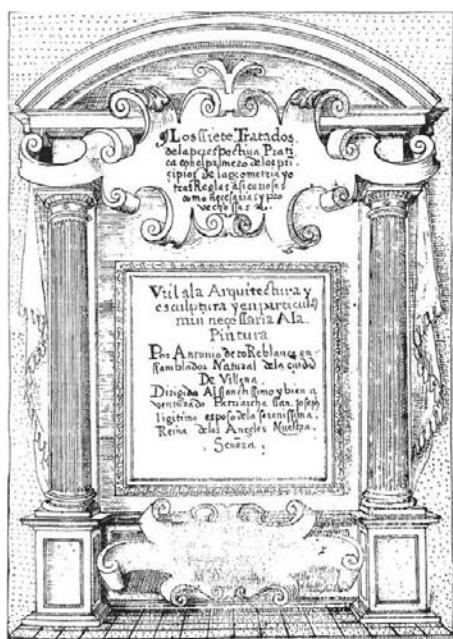 Los ssiete Tratados
de la perespectiua Prati
ca con el primero de los prī
cipios de la geometria yo
tras Reglas asi curiosas
como necesarias y pro
vechossas
Vtil a la Arquitectura y
esculptura y en particulā
muu necessaria A la
Pintura
Por Antonio de toReblanca en
ssamblador Natural de la ciudad
De Villena.
Dirigida Al ssanctissimo y bien a
venturado Patriarcha ssan Joseph
ligitimo esposo de la serenissima
Reina de los Angeles Nuestra
Señora.